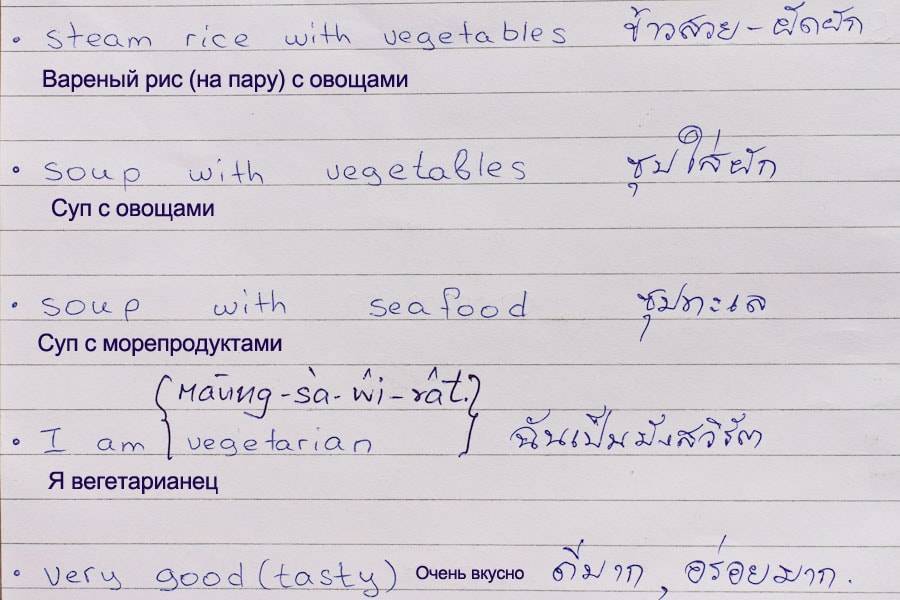 • steam rice with vegetables ข้าวสวย - ผัดผัก
Вареный рис (на пару) с овощами
• soup with vegetables ซุปใส่ผัก
Суп с овощами
• soup with seafood ซุปทะเล
Суп с морепродуктами
{маūng-sà-wî-rât.}
• I am {vegetarian} ฉันเป็นมังสวิรัต
Я вегетарианец
• very good (tasty) Очень вкусно ดีมาก, อร่อยมาก.